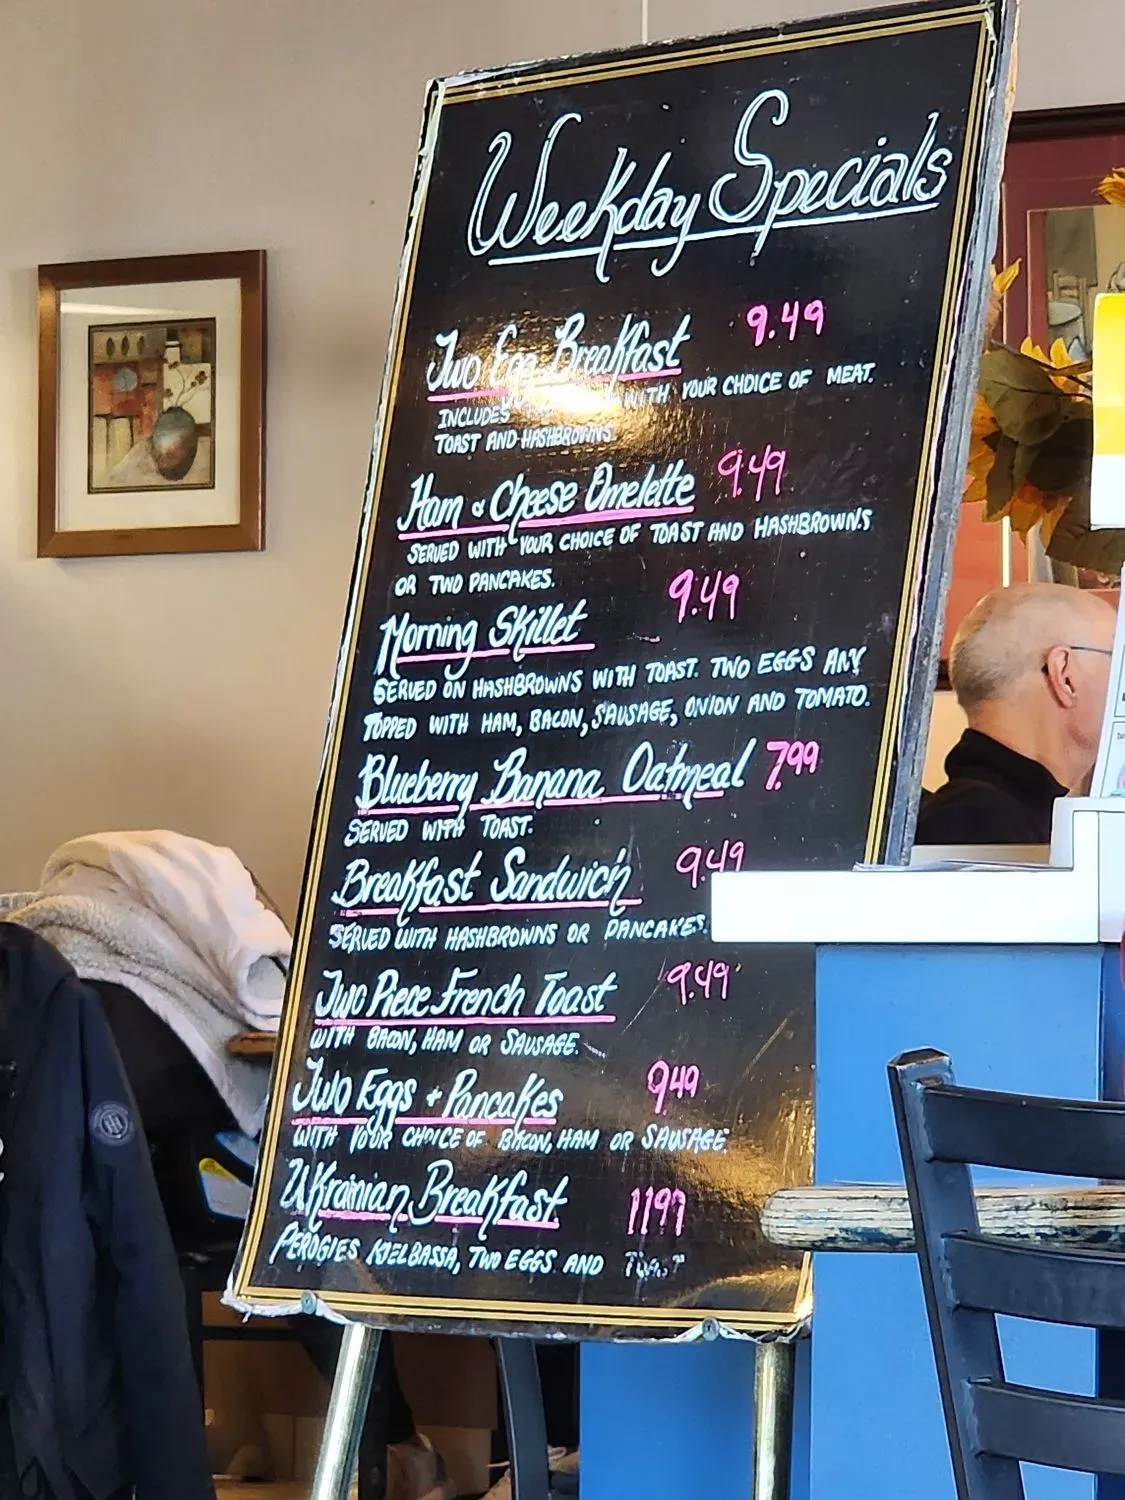 Weekday Specials
Two Egg Breakfast 9.49
INCLUDES WITH YOUR CHOICE OF MEAT.
TOAST AND HASHBROWNS
Ham & Cheese Omelette 9.49
SERVED WITH YOUR CHOICE OF TOAST AND HASHBROWNS
OR TWO PANCAKES.
Morning Skillet 9.49
SERVED ON HASHBROWNS WITH TOAST. TWO EGGS ANY
TOPPED WITH HAM, BACON, SAUSAGE, ONION AND TOMATO.
Blueberry Banana Oatmeal 7.99
SERVED WITH TOAST.
Breakfast Sandwich 9.49
SERVED WITH HASHBROWNS OR PANCAKES.
Two Piece French Toast 9.49
WITH BACON, HAM OR SAUSAGE.
Two Eggs + Pancakes 9.49
WITH YOUR CHOICE OF BACON, HAM OR SAUSAGE.
Ukrainian Breakfast 11.97
PEROGIES KIELBASSA, TWO EGGS AND TOAST